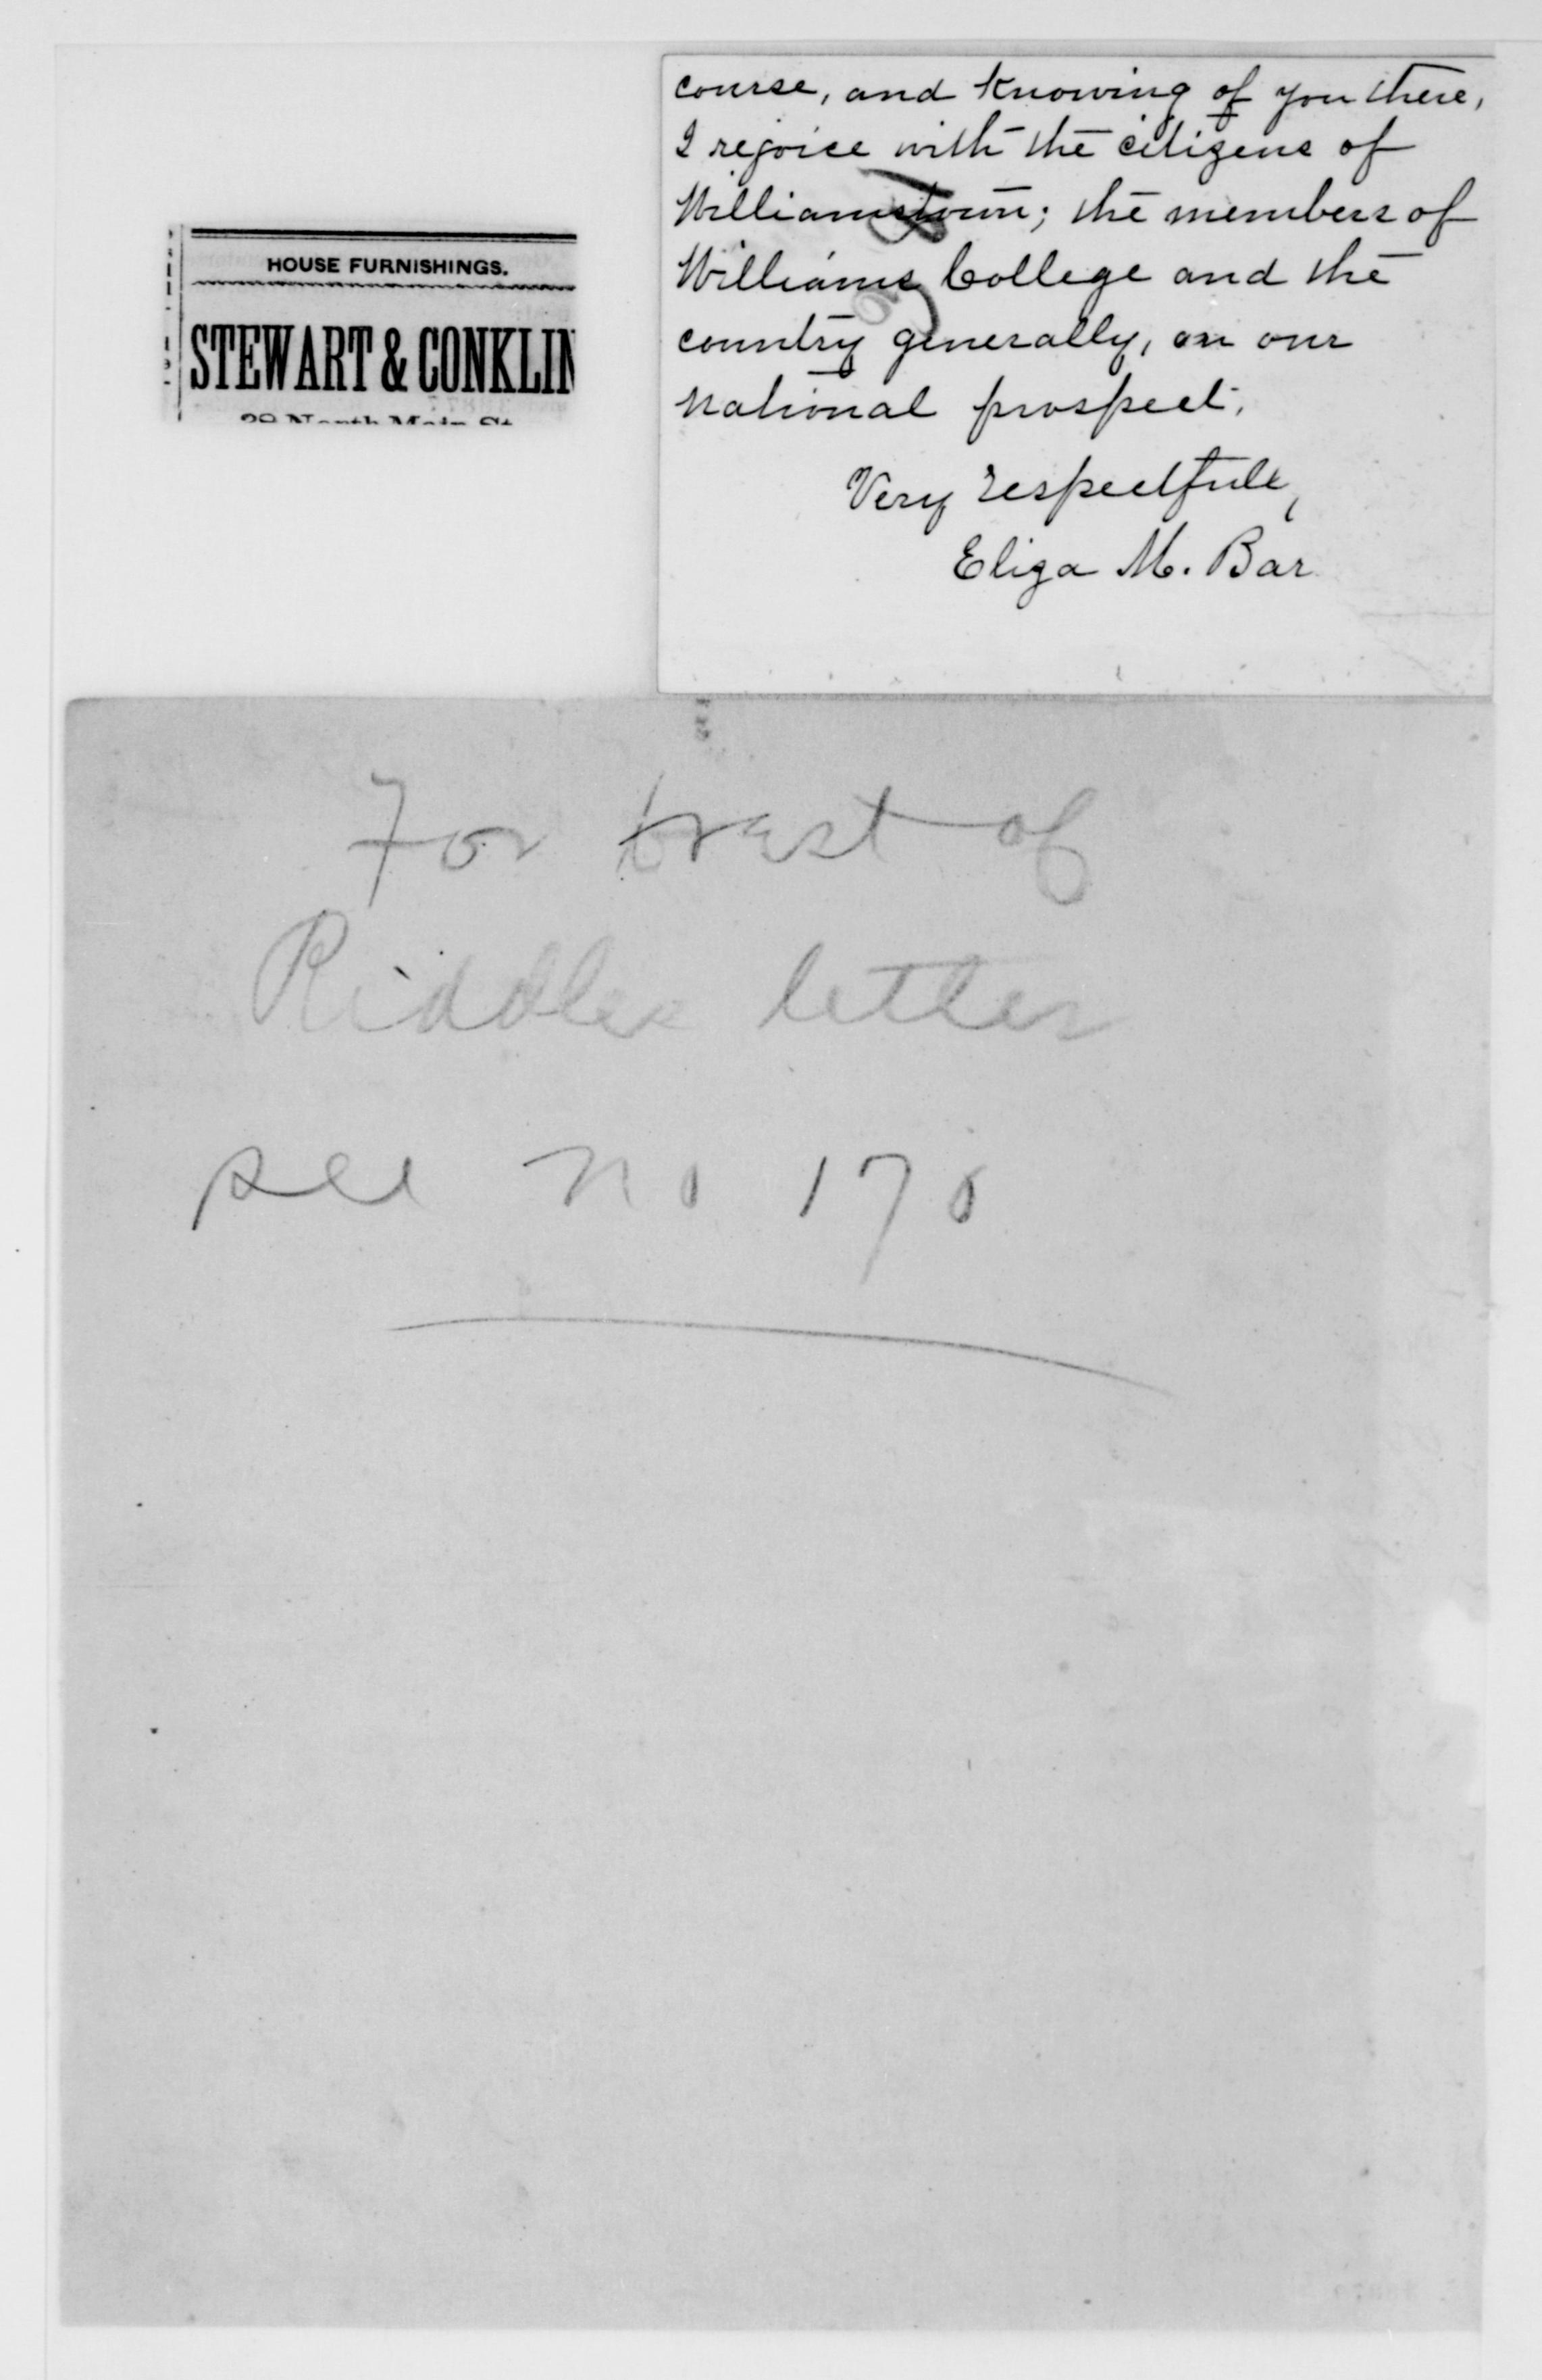 HOUSE FURNISHINGS.
STEWART & CONKLIN
North Main St
course, and knowing of you there,
I rejoice with the citizens of
Williamstown; the members of
Williams College and the
country generally, on our
national prospect.
Very respectfull,
Eliza M. Bar
For of
Riddle letter
see no 170